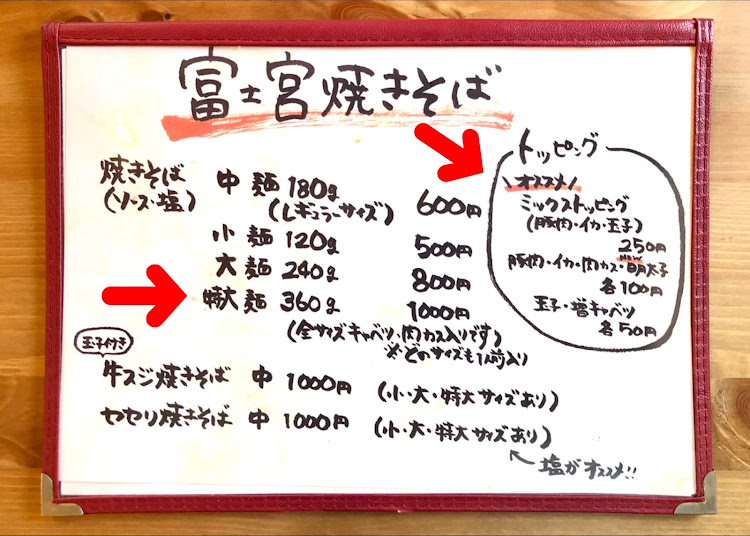 富士宮焼きそば
焼きそば 中 麺 180g
(ソース・塩) (レギュラーサイズ) 600円
小 麺 120g 500円
大 麺 240g 800円
特大 麺 360g 1000円
(全サイズキャベツ、肉カス入りです)
※どのサイズも1人前入り
玉子付き
牛スジ焼きそば 中 1000円 (小・大・特大サイズあり)
セセリ焼きそば 中 1000円 (小・大・特大サイズあり)
塩がオススメ!!
トッピング
\オススメ/
ミックストッピング
(豚肉・イカ・玉子)
250円
NEW
豚肉・イカ・肉カス・明太子
各100円
玉子・増キャベツ
各50円